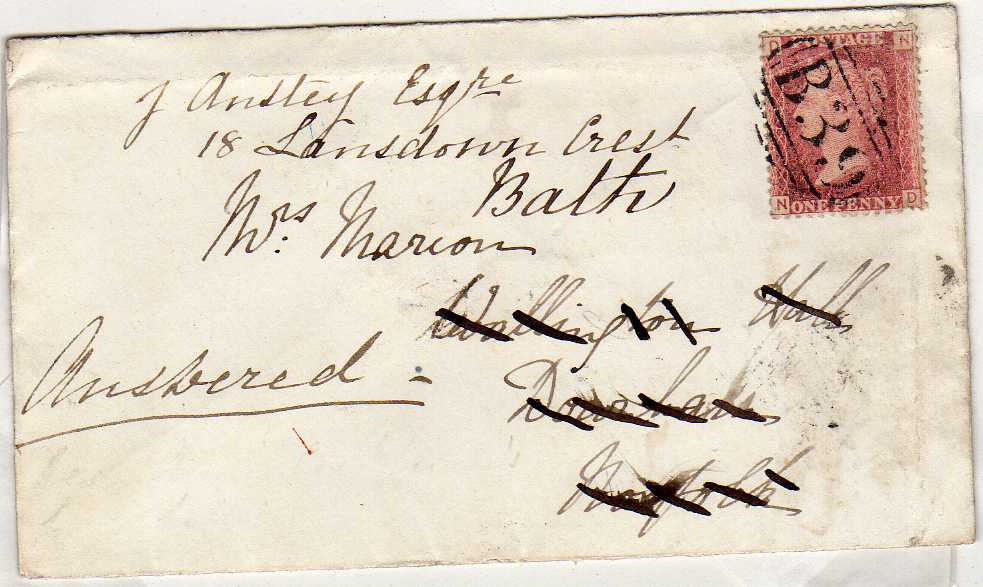 J Anstey Esqre
18 Lansdown Crest
Bath
Mrs. Marion
Wallington Hall
Downham
Norfolk
Answered -
D POSTAGE N
B39
N ONE PENNY D